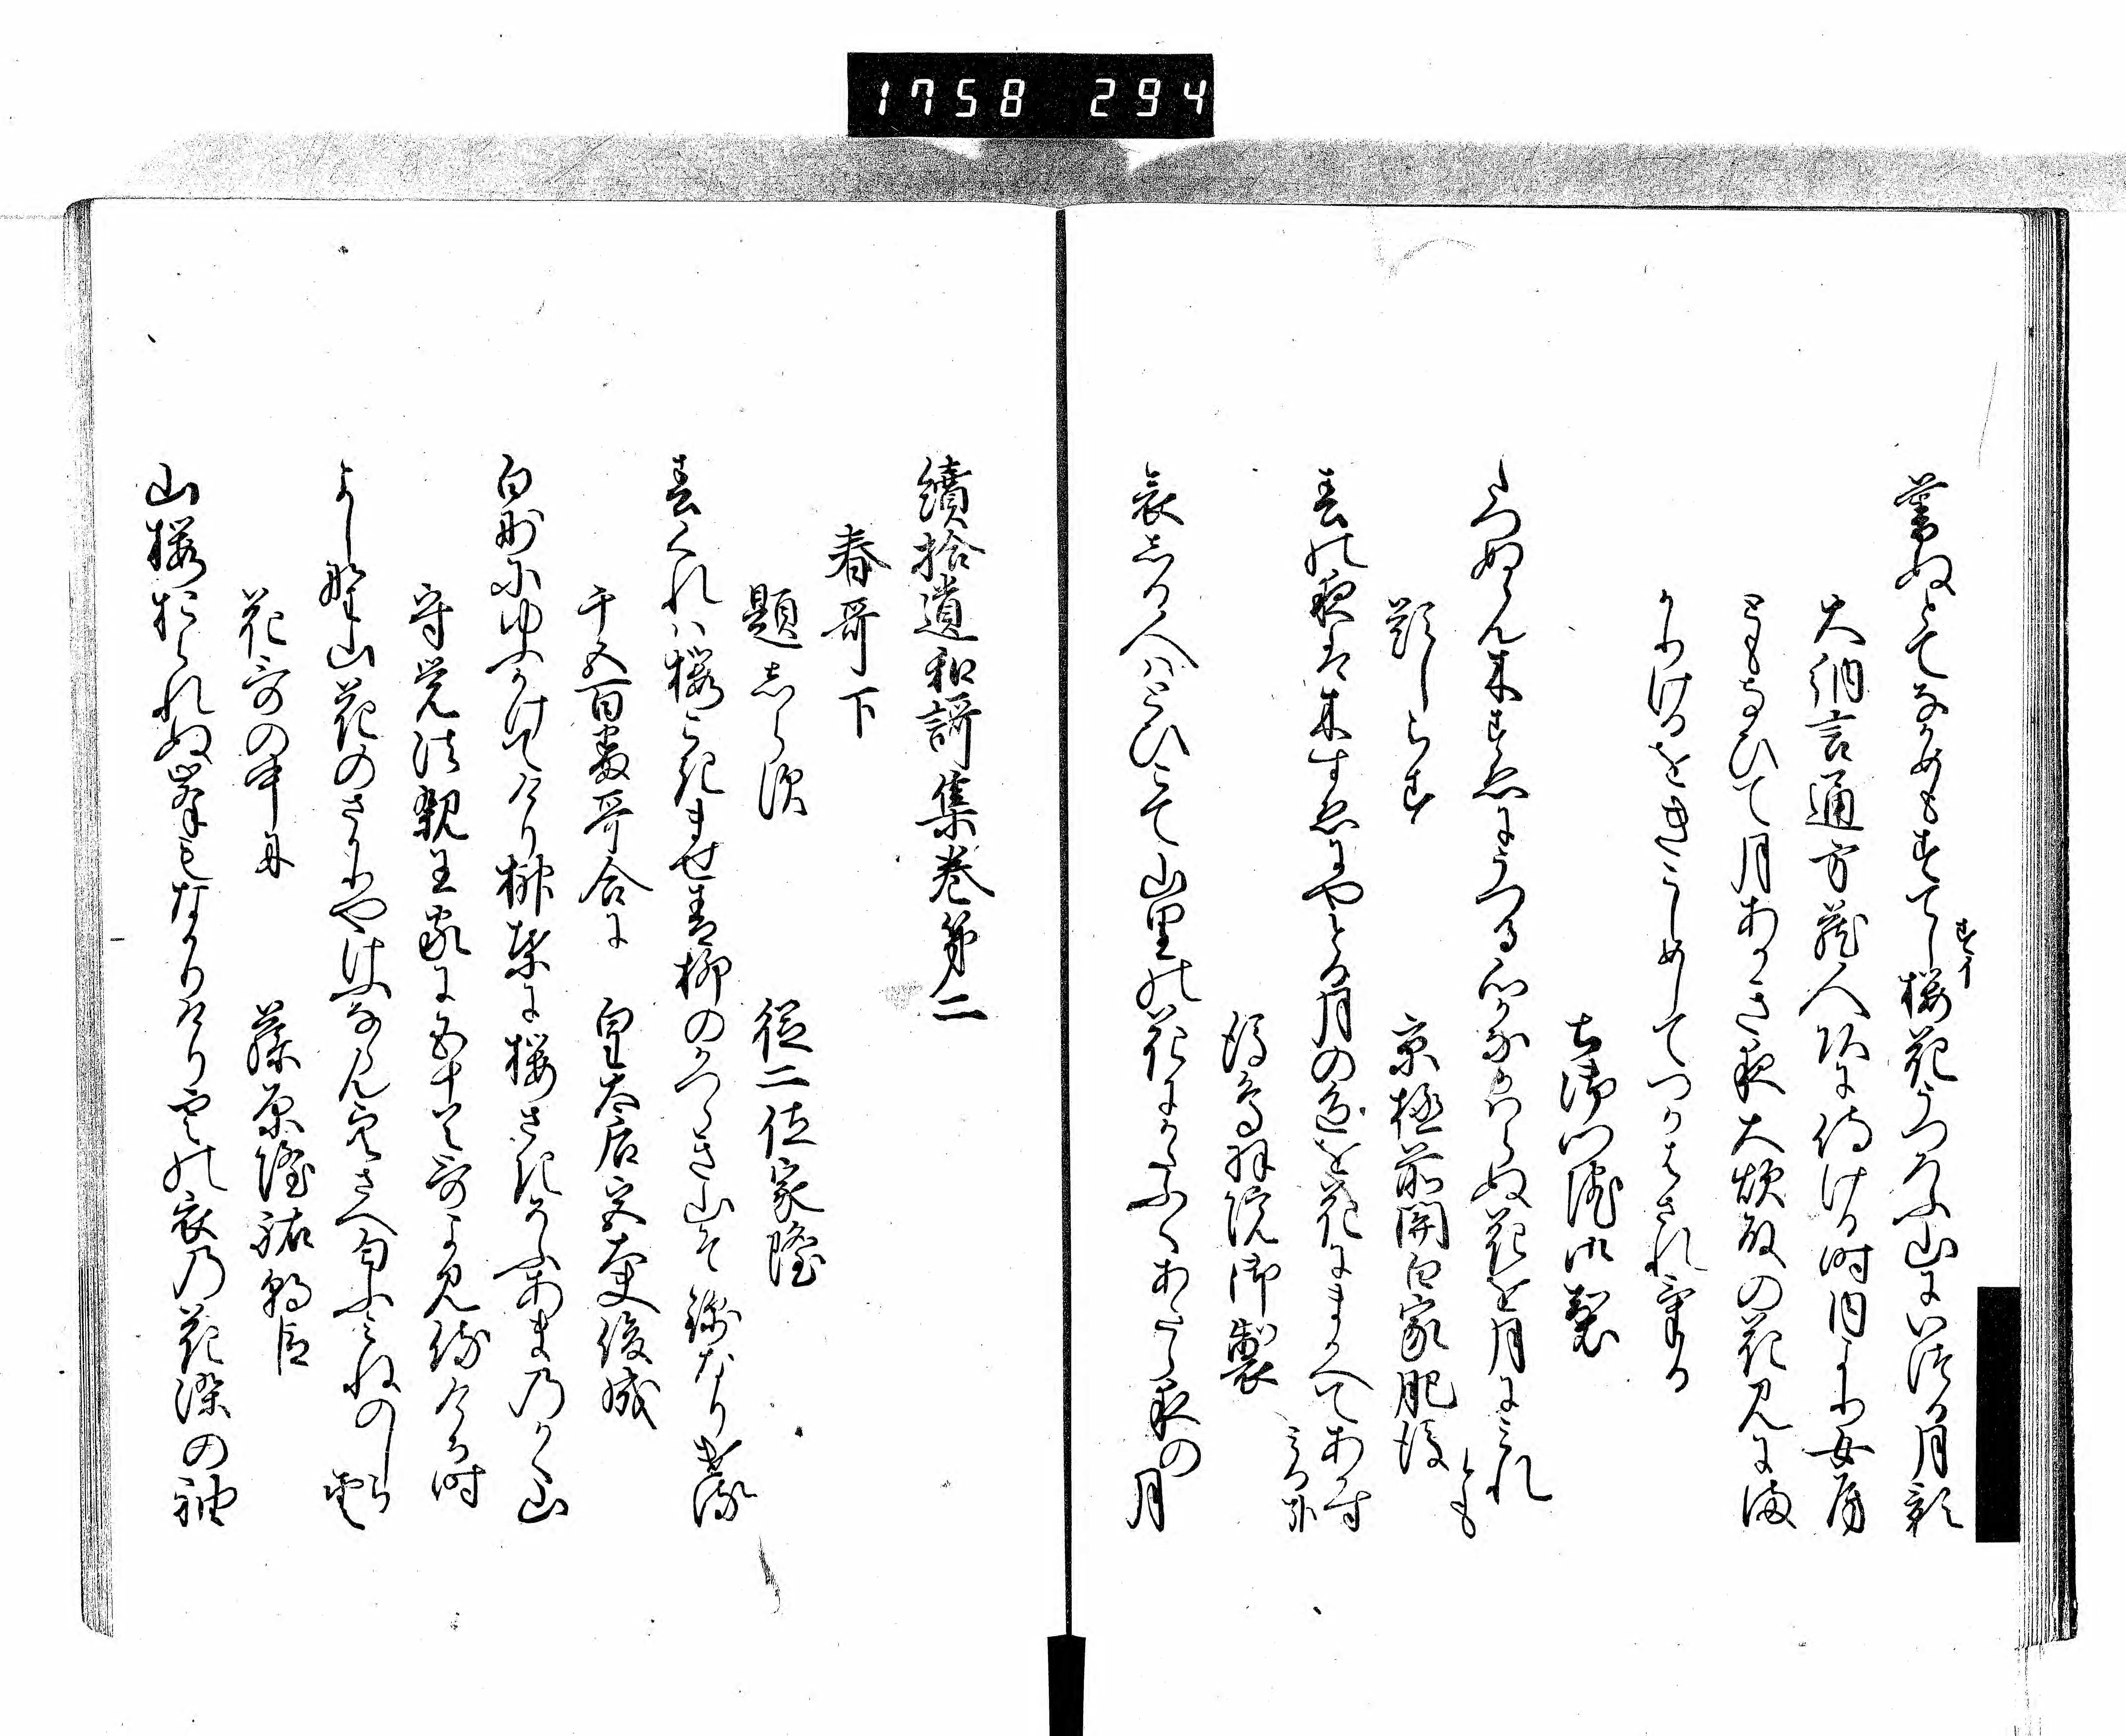 1758 294
暮ぬとてなかめもすてし桜花うつろふ山にいつる月影
すイ
大納言通方蔵人頭に侍ける時内より女房
ともなひて月あかき夜大炊殿の花見にま
かりけるをきこしめしてつかはされける
土御門院御製
たつぬらん木すゑにうつる心かなかはらぬ花を月にみれ
とも
題しらす
京極前関白家肥後
春の夜は木すゑにやとる月の色を花にまかへてあかす
みるかな
後鳥羽院御製
哀しる人はとひこて山里の花にかたふくあたら夜の月
續拾遺和謌集巻第二
春哥下
題しらす
従二位家隆
春くれは桜こきませ青柳のかつらき山そ錦なりける
千五百番哥合に
皇太后宮大夫俊成
白妙にゆふかけてけり榊葉に桜さきそふあまのかく山
守覚法親王家に五十首哥よみ侍ける時
よし野山花のさかりやけふならん空さへ匂ふみねのしら雲
花哥の中に
藤原隆祐朝臣
山桜おられぬ峯もなかりけり雲の衣の花染の袖